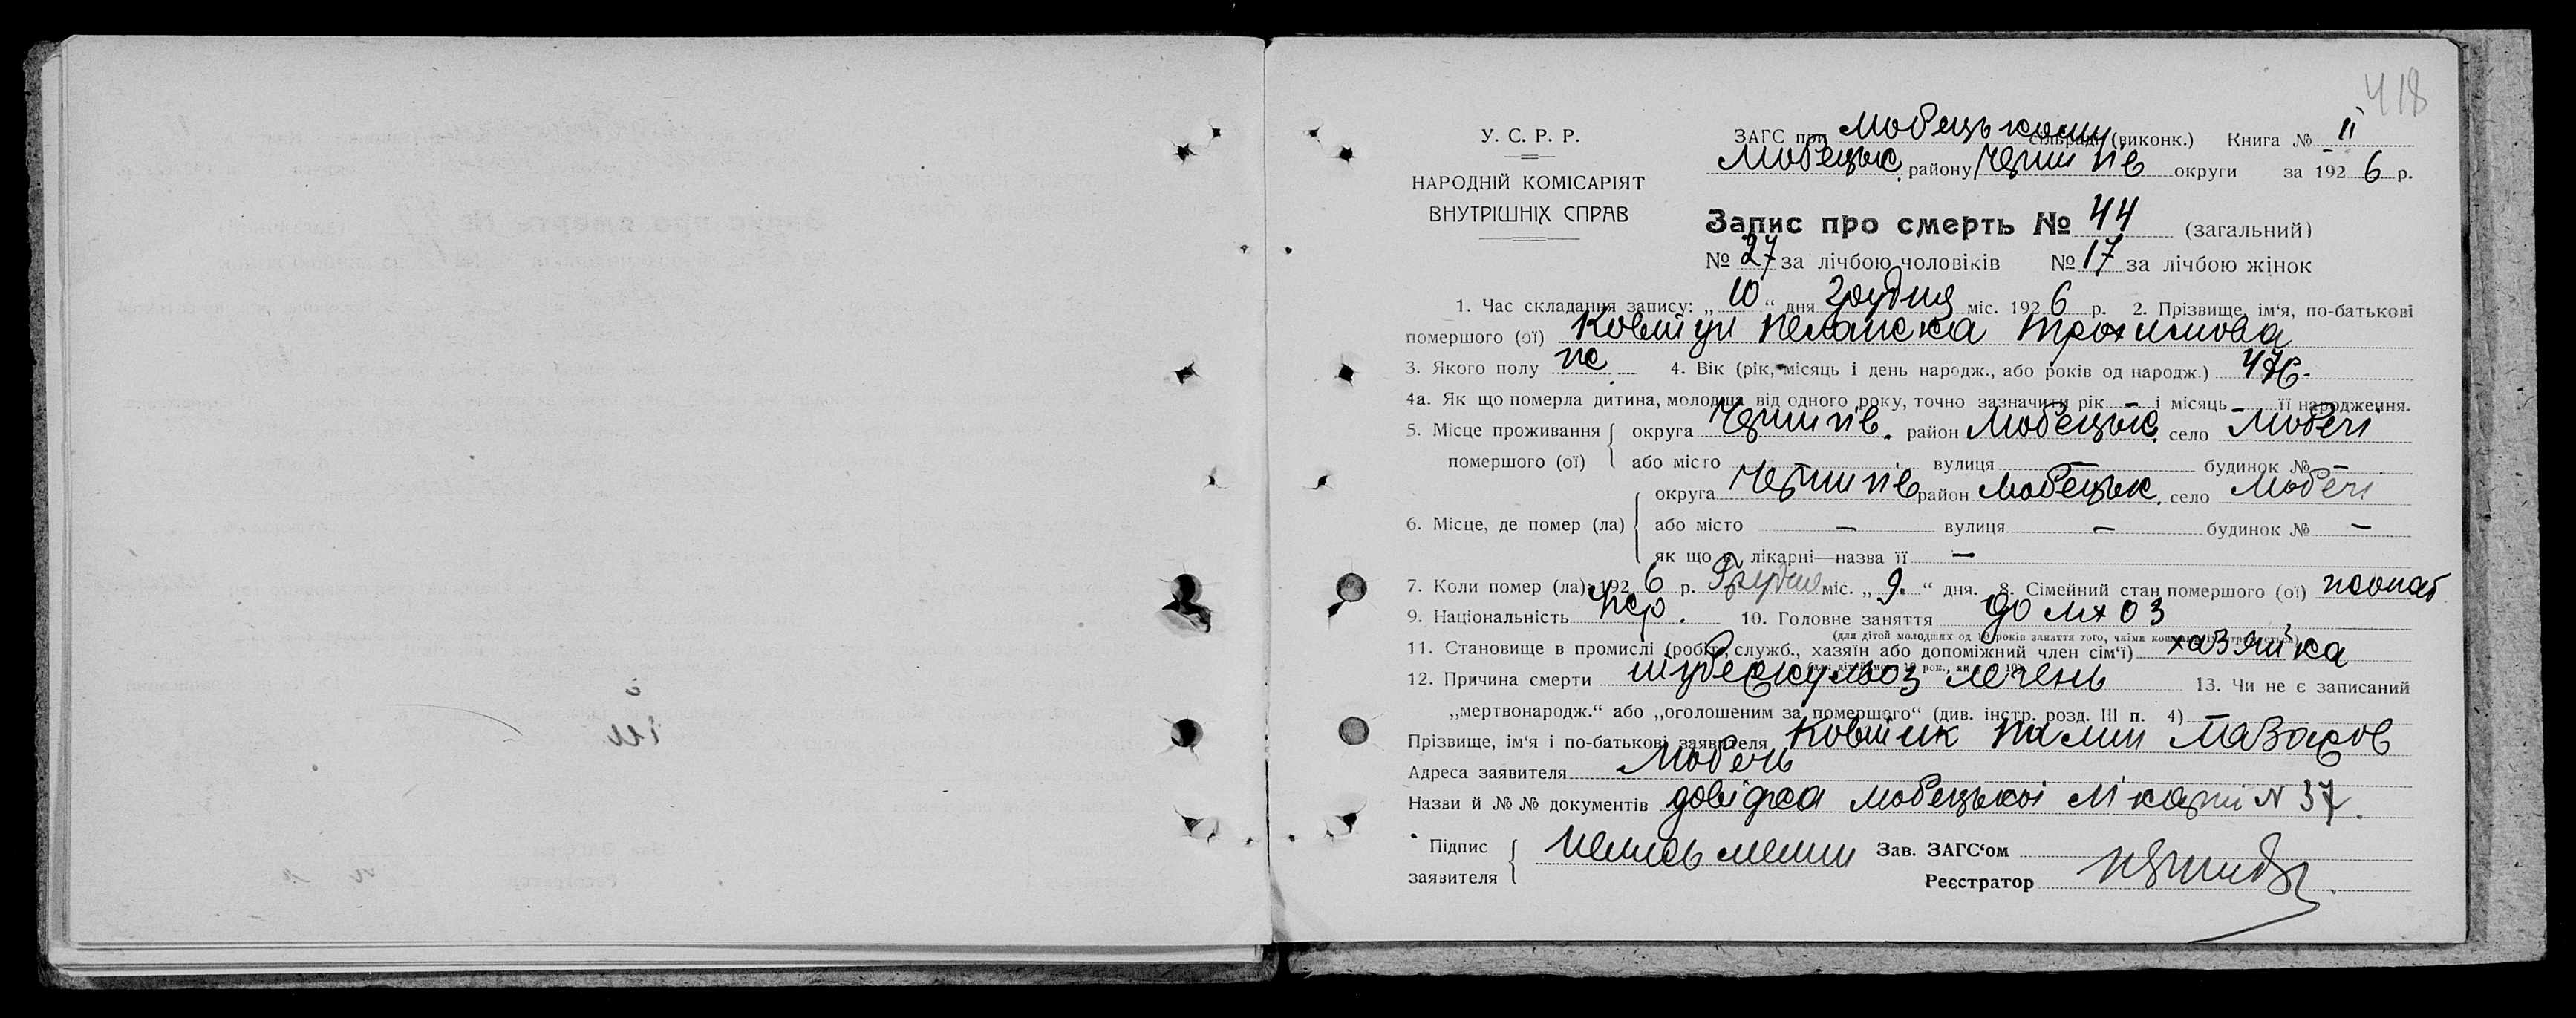 418
У. С. Р. Р.
НАРОДНІЙ КОМІСАРІЯТ
ВНУТРІШНІХ СПРАВ
ЗАГС при Любецькому сільраді (виконк.) Книга № II
Любецьк. району Черниг ів округи за 192 6 р.
Запис про смерть № 44 (загальний)
№ 27 за лічбою чоловіків № 17 за лічбою жінок
1. Час складання запису: „ 10 “ дня Грудня міс. 192 6 р. 2. Прізвище, ім‘я, по-батькові
помершого (ої) Ковтун Пелагєка Трохимова
3. Якого полу жс. 4. Вік (рік, місяць і день народж., або років од народж.) 47
4а. Як що померла дитина, молодша від одного року, точно зазначити рік — і місяць — її народження.
5. Місце проживання округа Чернигів. район Любецьк. село Любечі
помершого (ої) або місто вулиця — будинок № —
округа Чернигів район Любецьк. село Любечі
6. Місце, де помер (ла) або місто — вулиця — будинок № —
як що в лікарні—назва її —
7. Коли помер (ла): 192 6 р. Грудня міс. „ 9. “ дня. 8. Сімейний стан помершого (ої)
9. Національність Укр. 10. Головне заняття дом хоз
(для дітей молодших од 10 років заняття того, чиїми коштами утримується)
11. Становище в промислі (робіт., служб., хазяїн або допоміжний член сім‘ї) хазяйка
12. Причина смерти туберкульоз легень 13. Чи не є записаний
„мертвонародж.“ або „оголошеним за помершого“ (див. інстр. розд. III п. 4) —
Прізвище, ім‘я і по-батькові заявителя
Адреса заявителя Любечь
Назви й №№ документів довідка Любецької лікарні N 37.
Підпис
заявителя
Зав. ЗАГС‘ом
Реєстратор